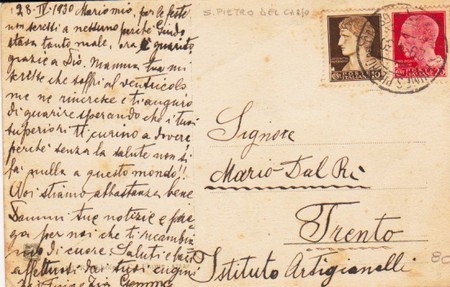 23-IV-1930 Mario mio, per le feste
non scretti a nessuno perchè Guido
stava tanto male, ora è guarito
grazie a Dio. Mamma tua mi
scrisse che soffri al ventricolo
me ne rincresce e ti auguro
di guarire sperando che i tuoi
superiori ti curino a dovere
perchè senza la salute non si
fà nulla a questo mondo!!
Noi stiamo abbastanza bene
Dammi tue notizie e prega
per noi che ti ricambia
mo di cuore. Saluti e baci
affettuosi dai tuoi cugini
e Zia Gemma
S. PIETRO DEL CARSO
Signore
Mario Dal Rì
Trento
Istituto Artigianelli
80